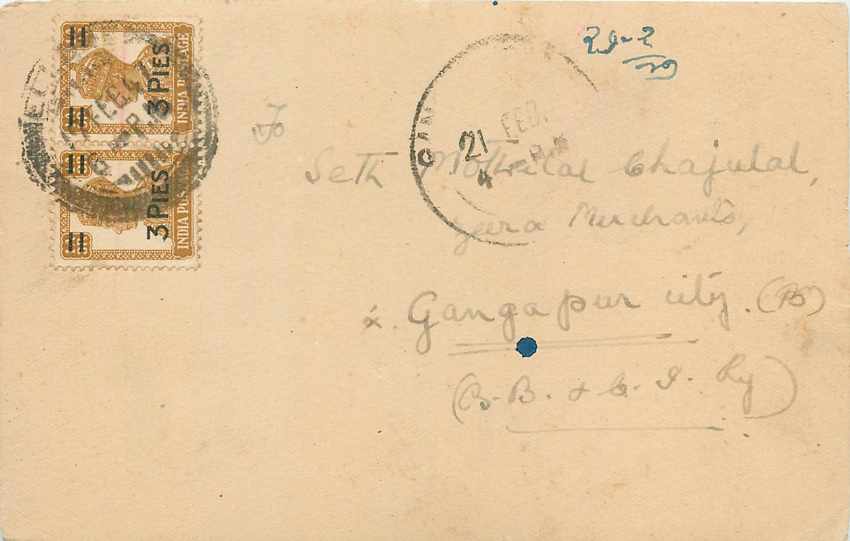 3 PIES
INDIA POSTAGE
3 PIES
INDIA POSTAGE
21 FEB.
To
Seth Mothilal Chajulal,
Jeera Merchants,
x. Gangapur city.
(B. B. & C. I. Ry)